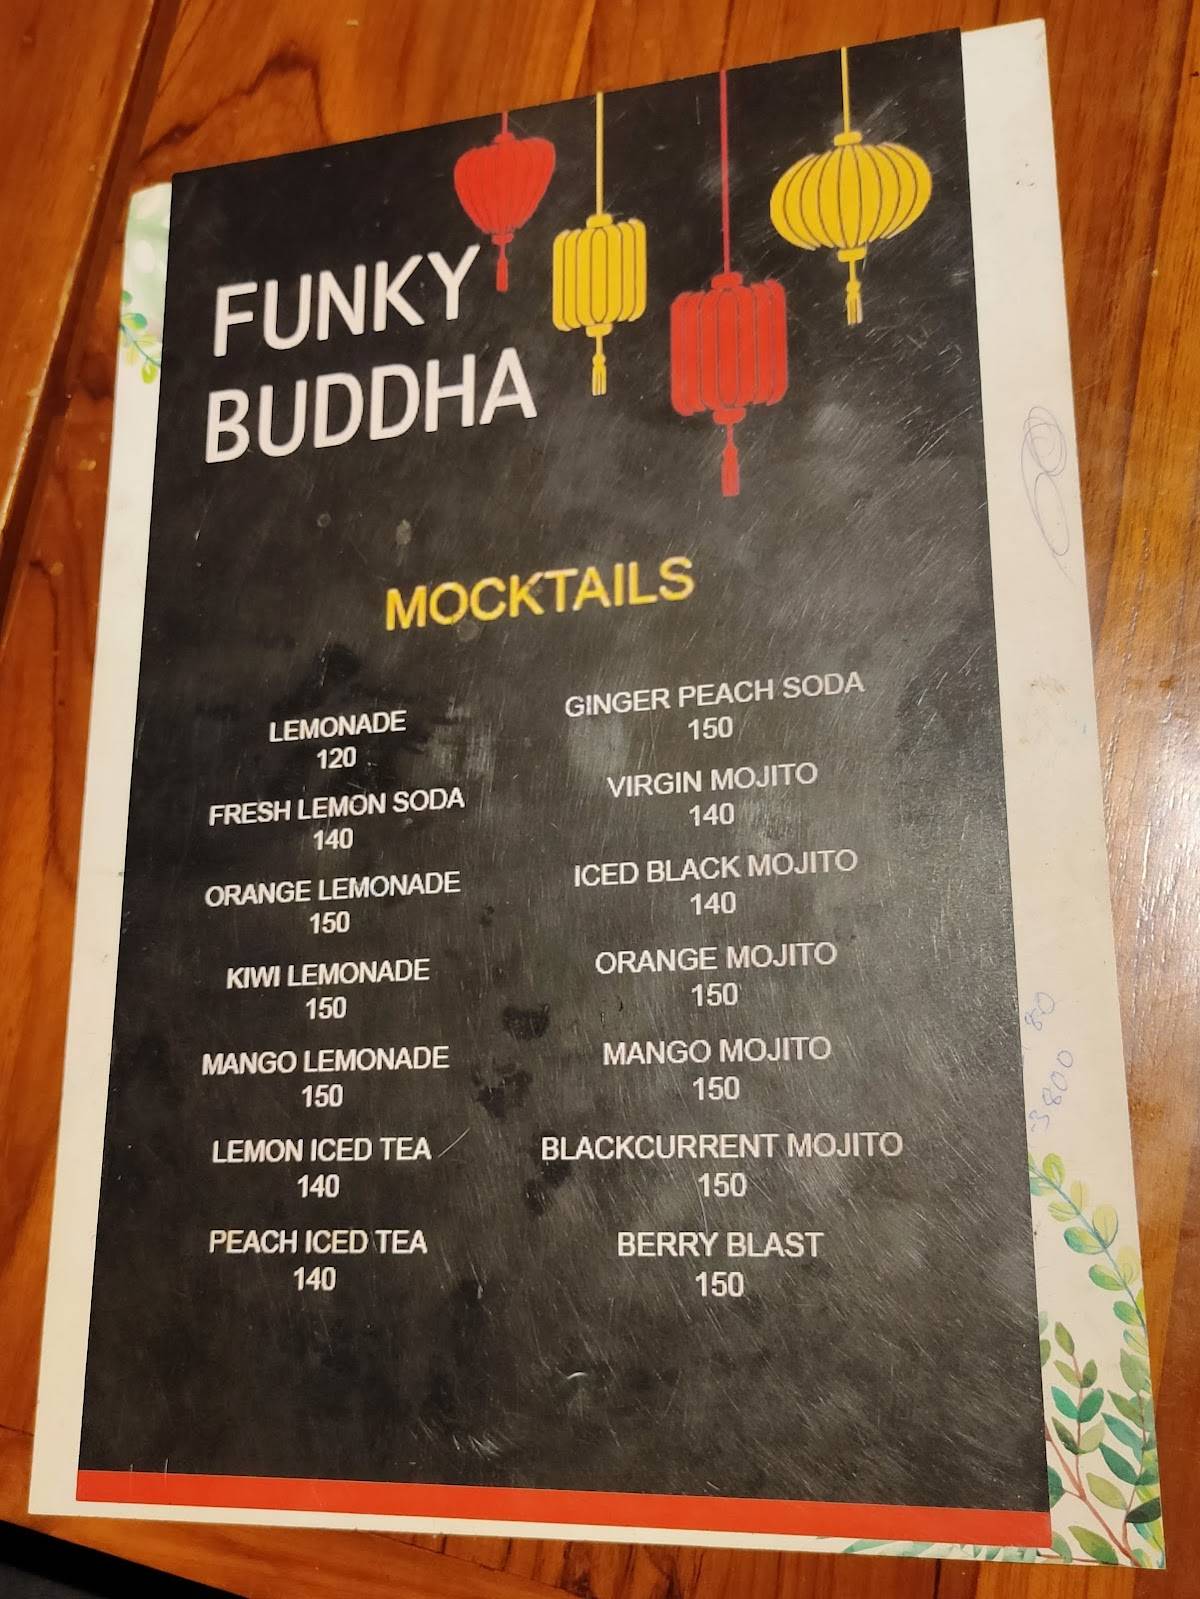 FUNKY
BUDDHA
MOCKTAILS
LEMONADE
120
FRESH LEMON SODA
140
ORANGE LEMONADE
150
KIWI LEMONADE
150
MANGO LEMONADE
150
LEMON ICED TEA
140
PEACH ICED TEA
140
GINGER PEACH SODA
150
VIRGIN MOJITO
140
ICED BLACK MOJITO
140
ORANGE MOJITO
150
MANGO MOJITO
150
BLACKCURRENT MOJITO
150
BERRY BLAST
150
3800